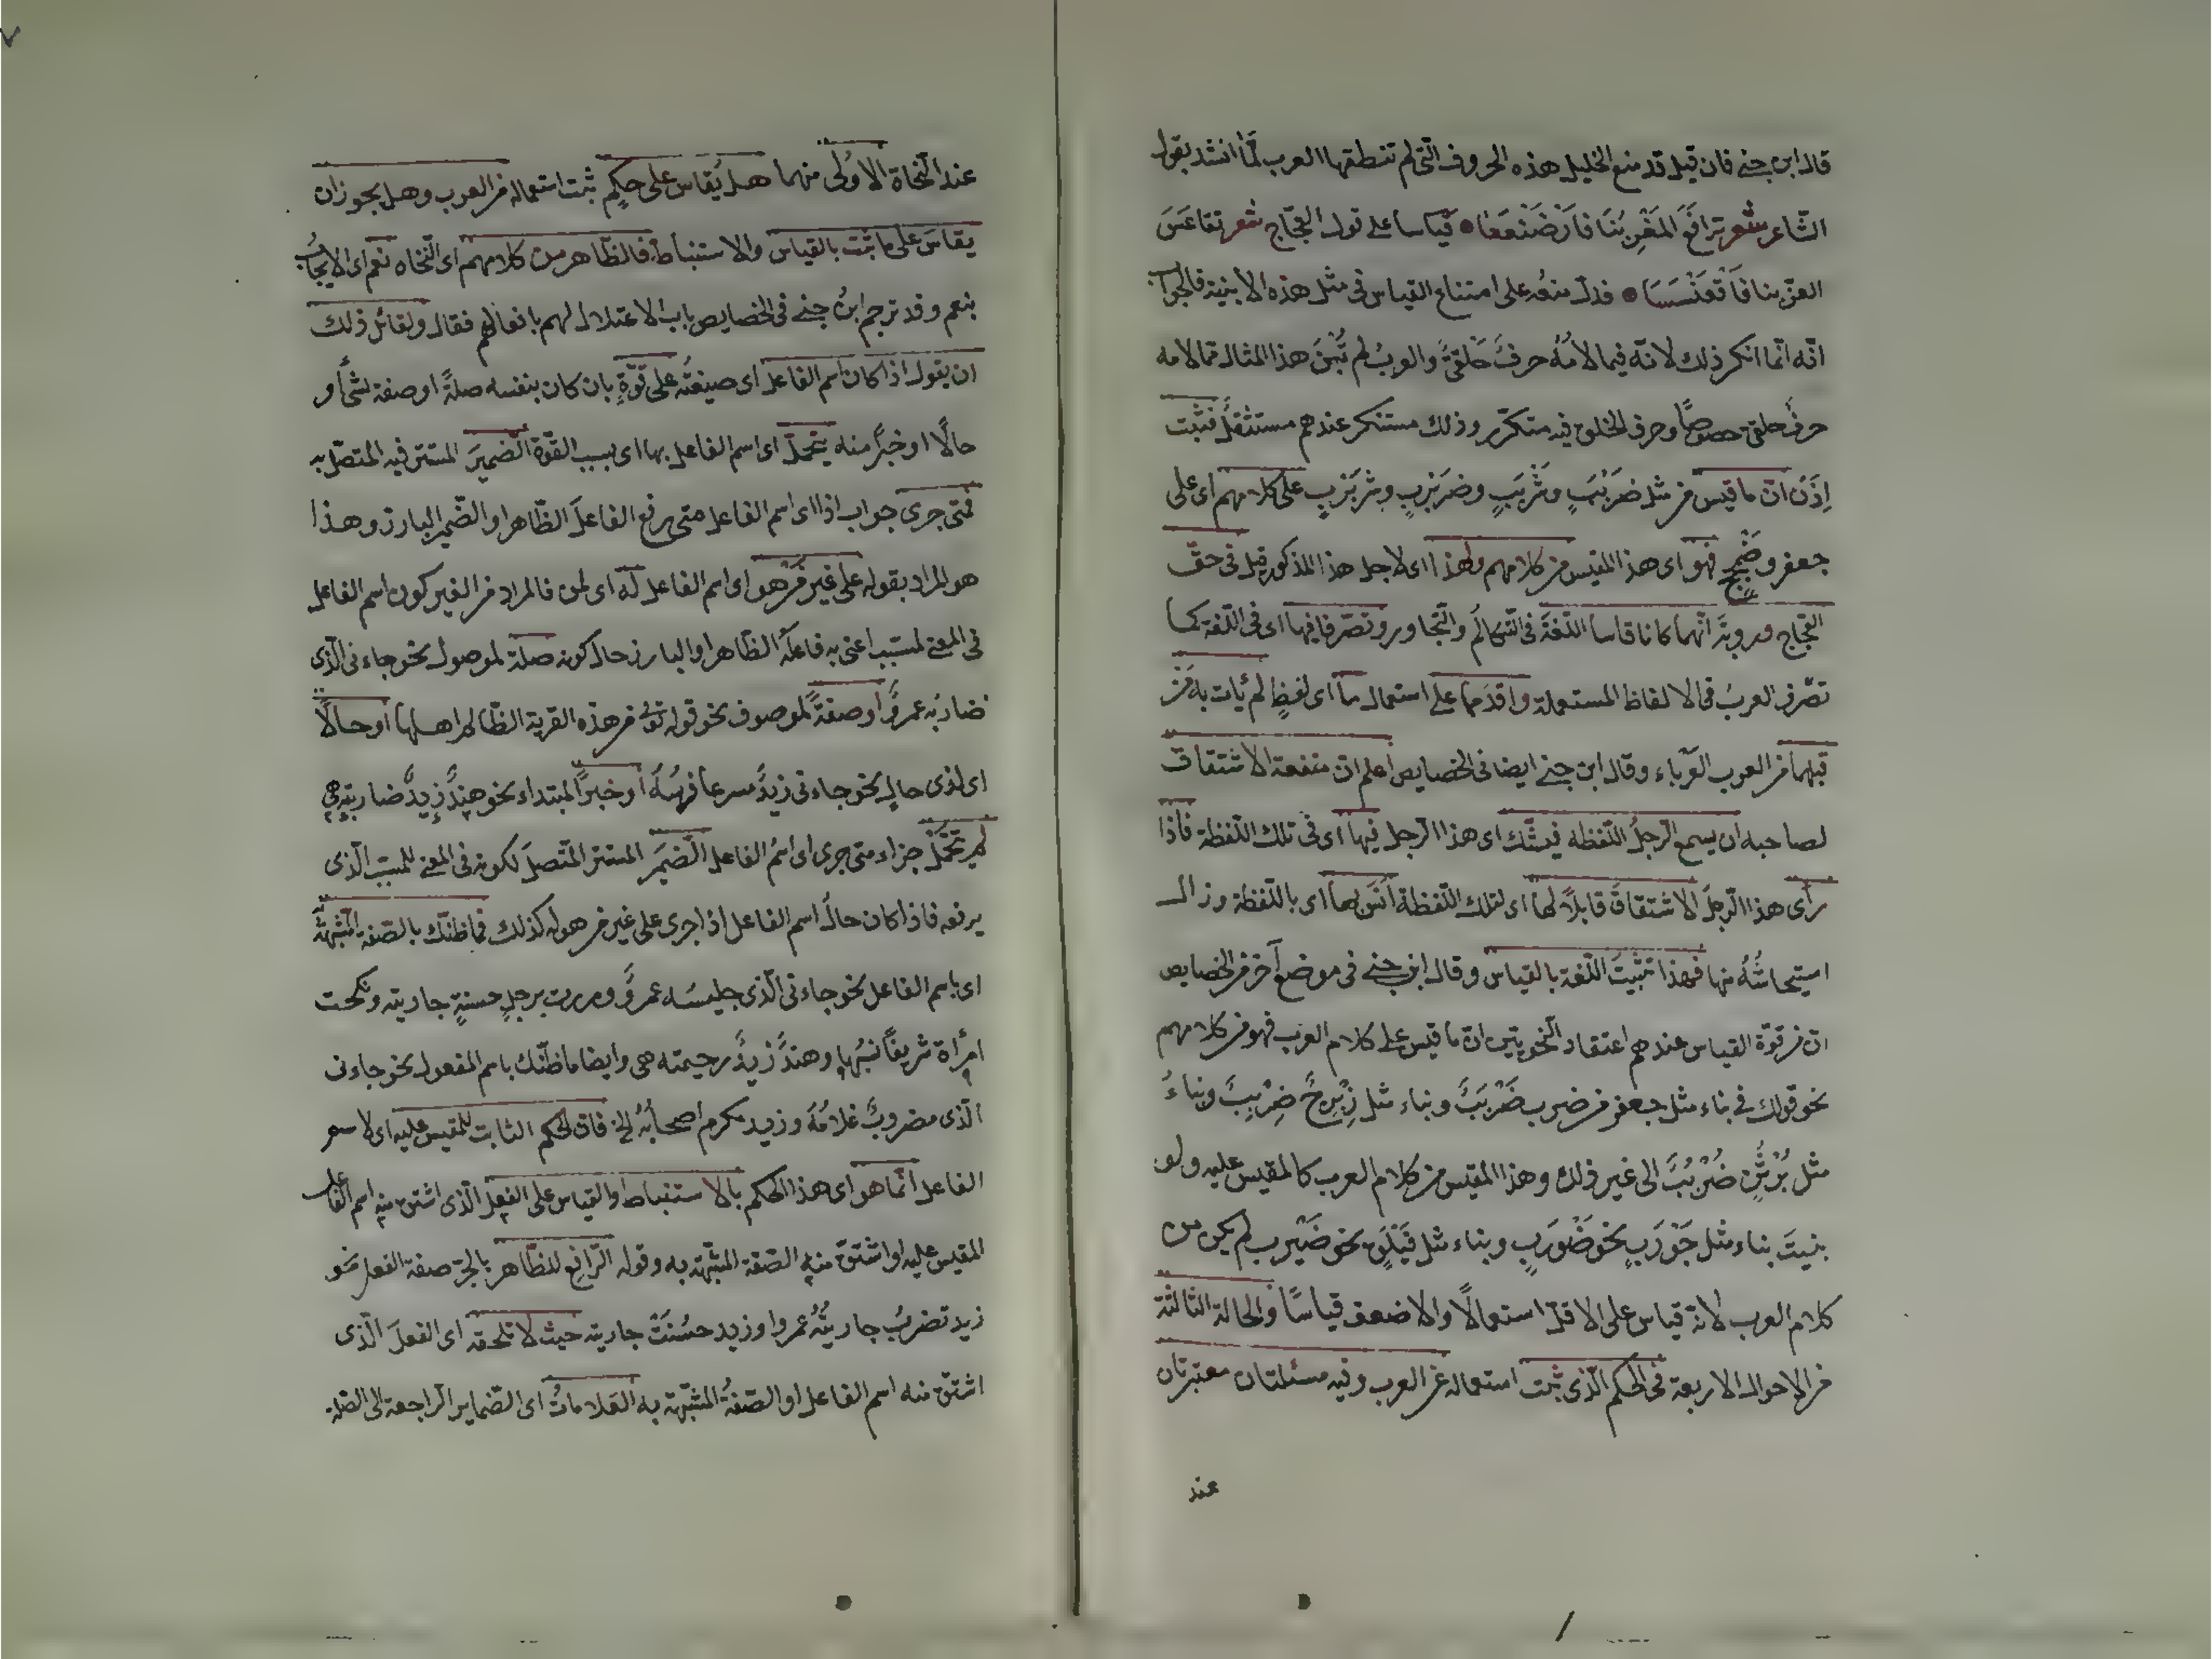 قال ابن جنے فان قيل قد منع الخليل هذه الحروف الّتى لم تنطقها العرب لمّا انشد بقول
الشّاعر شعر ترافَعَ العَزُّ بُنَا فارْفَنْعَعَا قياسا على قول العجّاج شعر تقاعَسَ
العزّ بنا فَاقْعَنْسَسَا فدلّ منعُه على امتناع القياس فى مثل هذه الابنية فالجواب
انّه انّما انكر ذلك لانّه فيما لامُهُ حرفٌ حَلْقىٌّ والعربُ لم تَبْنِ هذا المثال ممّا لامه
حرفٌ حلقى خصوصًا وحرف الحلق فيه متكرّر وذلك مستنكر عندهم مستثقلٌ فثبت
اِذَنْ انّ ما قيس من مثل ضَرَبَبٍ وشَرْبَبٍ وضربَبٍ وشربَبٍ على كلامهم اى على
جعفر فهو اى هذا المقيس من كلامهم ولهذا اى لاجل هذا المذكور قيل فى حقّ
العجّاج ورؤبة انّهما كانا قاسا اللّغةَ فى التّكالُم والتّجاور وتصرّفا فيها اى فى اللّغة كما
تصرّف العربُ فى الالفاظ المستعملة واقدَما على استعمال ما اى لفظٍ لم يأت به مَنْ
قبلهما من العرب العَرْباء وقال ابن جنے ايضا فى الخصايص اعلم انّ منفعة الاشتقاق
لصاحبه ان يسمع الرّجلُ اللّفظة فيشكّ اى هذا الرّجل فيها اى فى تلك اللّفظة فاذا
رأى هذا الرّجلُ الاشتقاقَ قابلًا لها اى لتلك اللّفظة اَنِسَ بها اى باللّفظة وزال
استيحاشُهُ منها فهذا تثبيتُ اللّغة بالقياس وقال ابن جنے فى موضع آخر من الخصايص
انّ من قوّة القياس عندهم اعتقاد النّحويّين انّ ما قيس على كلام العرب فهو من كلامهم
نحو قولك فى بناء مثل جعفر من ضرب ضَرْبَبٌ وبناء مثل زِبْرِجٌ ضِرْبِبٌ وبناءُ
مثل بُرْثُنٍ ضُرْبُبٌ الى غير ذلك وهذا المقيس من كلام العرب كالمقيس عليه ولو
بنيتَ بناء مثل جَوْرَبٍ نحو ضَوْرَبٍ وبناء مثل فَيْلَقٍ نحو ضَيْرب لم يكن من
كلام العرب لانّه قياس على الاقلّ استعمالًا والاضعف قياسًا والحالة الثالثة
من الاحوال الاربعة فى الحكم الّذى ثبت استعماله عن العرب وفيه مسئلتان معتبرتان
عند
عند النّحاة الاُولٰى منهما هل يُقاس على حكمٍ ثبت استعماله من العرب وهل يجوز ان
يقاسَ على ما ثبت بالقياس والاستنباط فالظّاهر من كلامهم اى النّحاه نعم اى الايجابُ
بنعم وقد ترجم ابنُ جنے فى الخصايص باب الاعتلال لهم بافعالهم فقال ولقائل ذلك
ان يقول اذا كان اسم الفاعل اى صيغتُه على قوّةٍ بان كان بنفسه صلةً او صفة لشئ أو
حالًا او خبرًا منه يتحمّل اى اسم الفاعل بها اى بسبب القوّة الضّميرَ المستتر فيه المتّصل به
فمتى جرى جواب اذا اى اسم الفاعل متى رفع الفاعلَ الظّاهر او الضّمير البارز وهذا
هو المراد بقوله على غير مَنْ هو اى اسم الفاعل لَهُ اى لمن فالمراد من الغير كون اسم الفاعل
فى المعنے لمسبّب اعنى به فاعلَهُ الظّاهر او البارز حال كونه صلة لموصول نحو جاءنى الّذى
ضاربُه عمروٌ أو صفةً لموصوف نحو قوله تع من هذه القرية الظّالم اهلها أو حالًا
اى لذى حالٍ نحو جاءنى زيدٌ مسرعًا فرسُهُ أو خبرًا لمبتداء نحو هندٌ زيدٌ ضاربته هى
لم يتحمّل جزاء متى جرى اى اسمُ الفاعل الضّميرَ المستتر المتّصلَ لكونه فى المعنے للمسبّب الّذى
يرفعه فاذا كان حالُ اسم الفاعل اذا جرى على غير من هو له كذلك فما ظنّك بالصّفة المشبّهة
اى باسم الفاعل نحو جاءنى الّذى جليسَه عمروٌ ومررت برجلٍ حسنةٍ جاريته ونكحت
امرأة شريفًا نسبُها وهندٌ زيدٌ رحيمته هى وايضا ما ظنّك باسم المفعول نحو جاءنى
الّذى مضروبٌ غلامُهُ وزيد مكرم اصحابُهُ الخ فانّ الحكم الثابت للمقيس عليه اى لاسم
الفاعل انّما هو اى هذا الحكم بالاستنباط والقياس على الفعل الّذى اشتقّ منه اسم الفاعل
المقيس عليه او اشتقّ منه الصّفة المشبّهة به وقوله الرّافع للظّاهر بالجرّ صفة الفعل نحو
زيد تضربُ جاريتُهُ عمروا وزيد حسُنَتْ جاريته حيث لا تلحقه اى الفعلَ الّذى
اشتقّ منه اسم الفاعل او الصّفةُ المشبّهة به العَلاماتُ اى الضّماير الرّاجعة الى